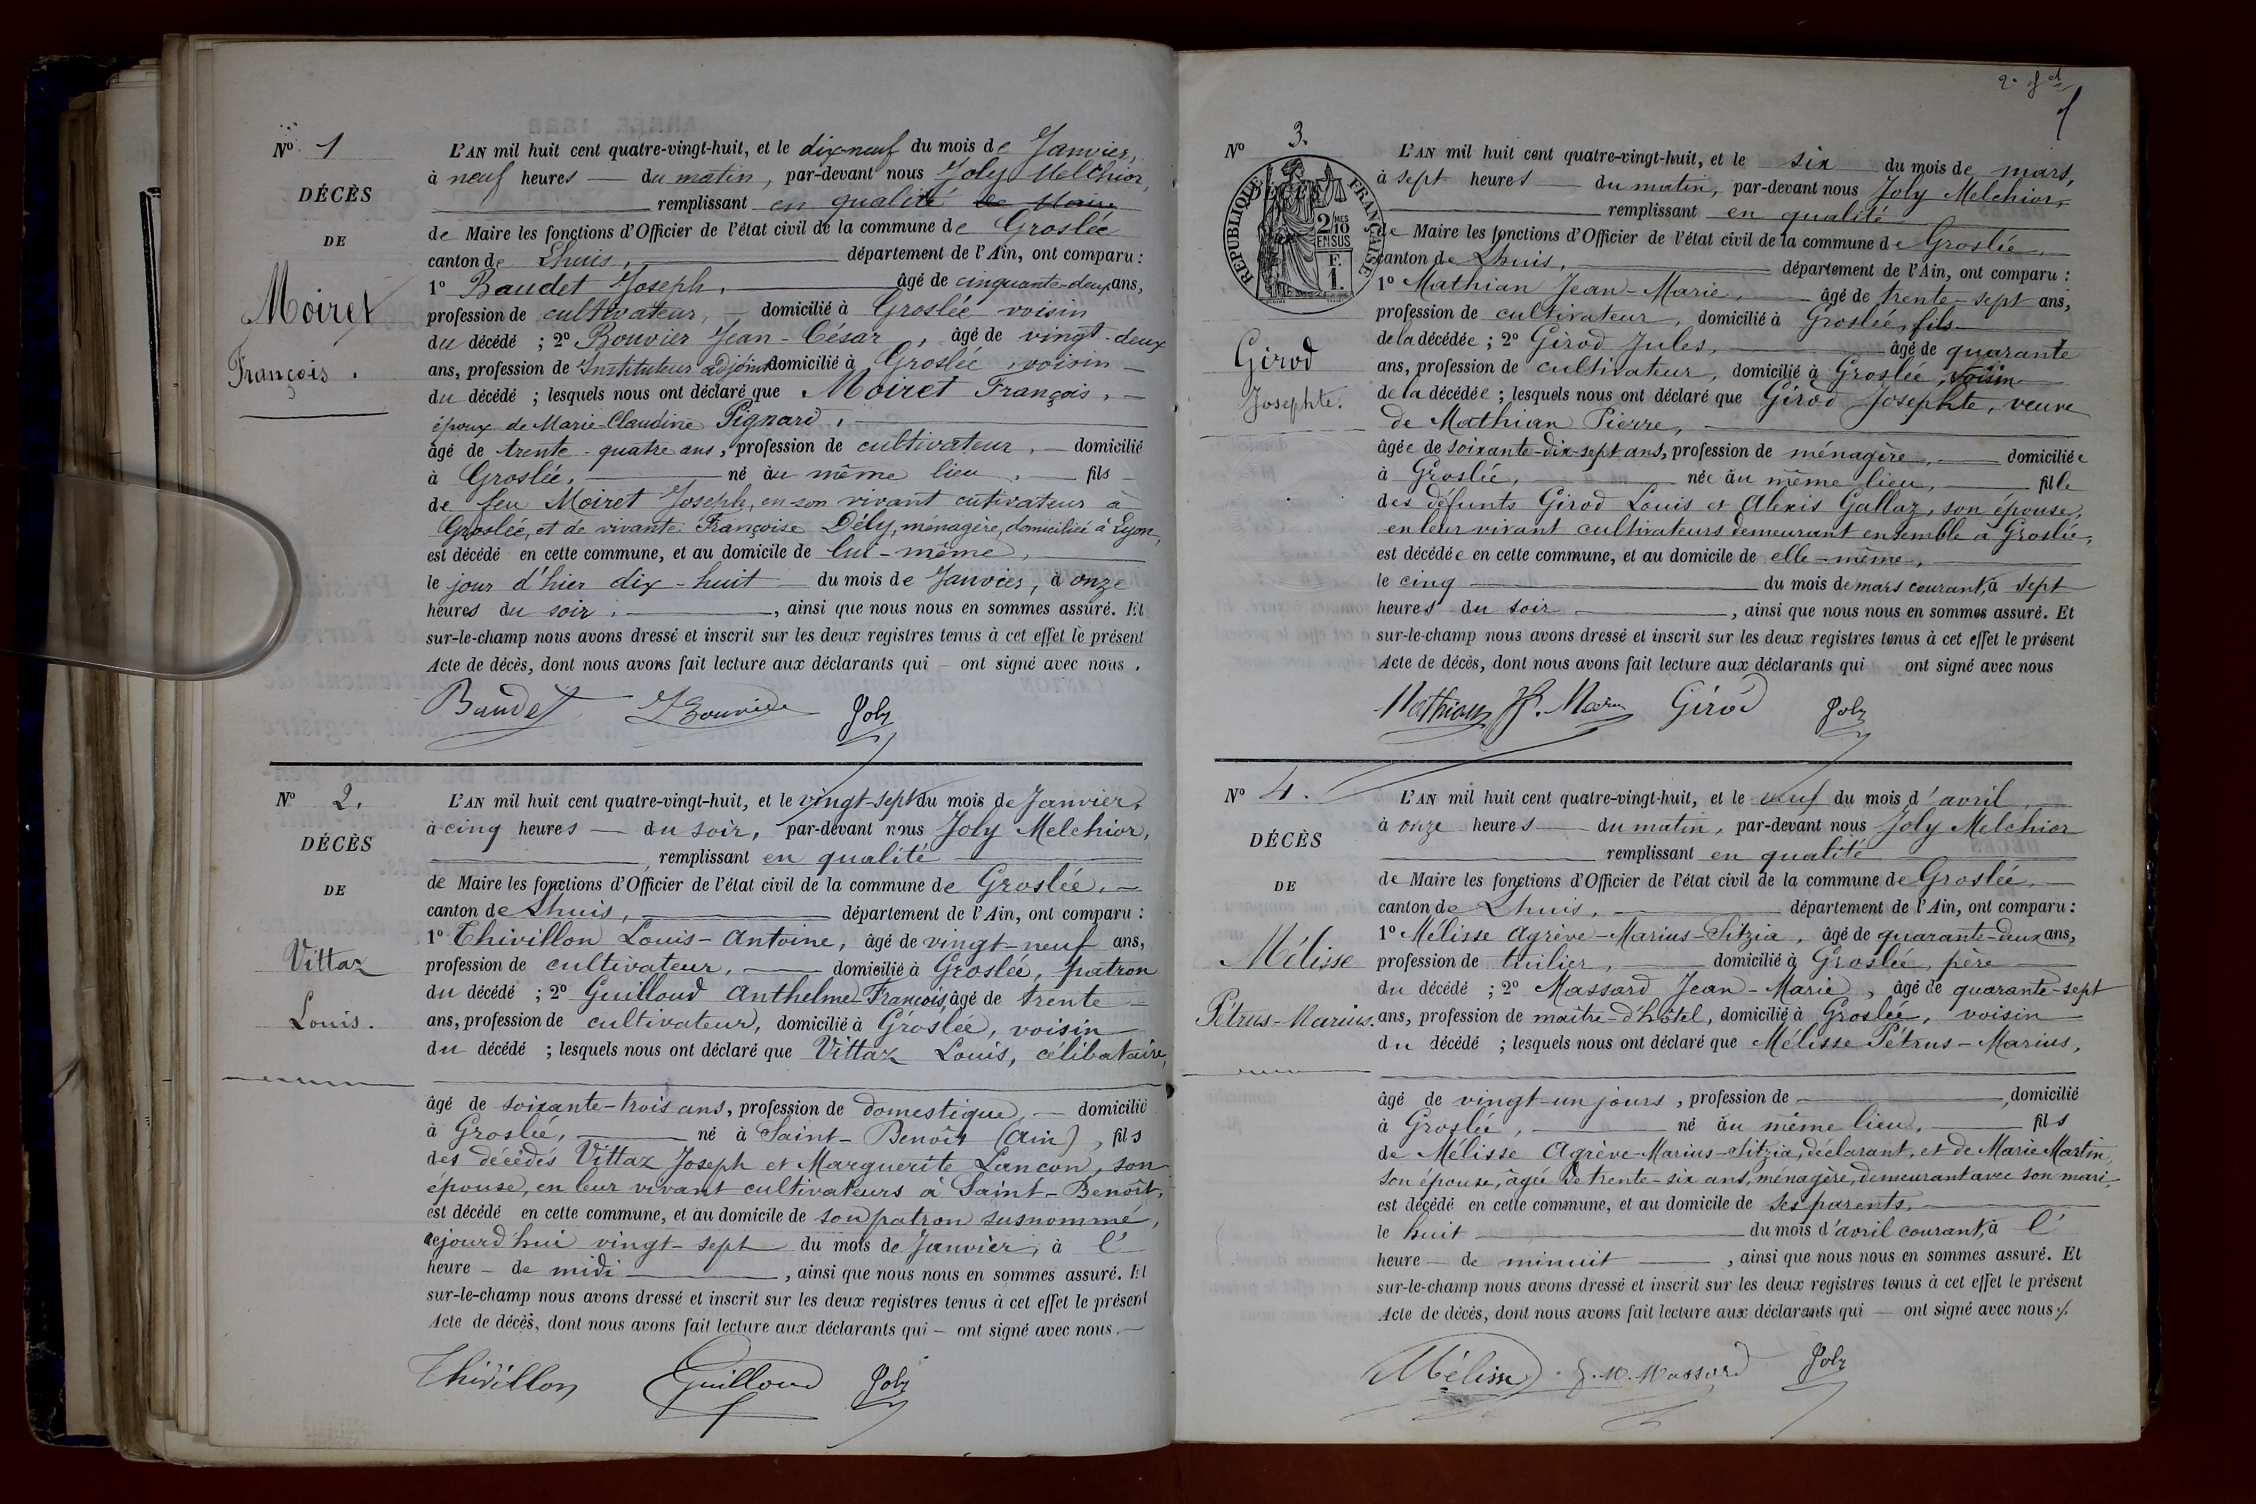 Nº 1
DÉCÈS
DE
Moiret
François.
L'AN mil huit cent quatre-vingt-huit, et le dix-neuf du mois de Janvier,
à neuf heures du matin, par-devant nous Joly Melchior,
remplissant en qualité
de Maire les fonctions d'Officier de l'état civil de la commune de Groslée
canton de Lhuis, département de l'Ain, ont comparu :
1º Baudet Joseph, âgé de cinquante-deux ans,
profession de cultivateur, domicilié à Groslée voisin
du décédé ; 2º Bouvier Jean-César, âgé de vingt-deux
ans, profession de Instituteur adjoint domicilié à Groslée, voisin
du décédé ; lesquels nous ont déclaré que Moiret François,
époux de Marie-Claudine Pignard,
âgé de trente-quatre ans, profession de cultivateur, domicilié
à Groslée, né au même lieu, fils
de feu Moiret Joseph, en son vivant cutivateur à
Groslée, et de vivante Françoise Dély, ménagère, domiciliée à Lyon,
est décédé en cette commune, et au domicile de lui-même,
le jour d'hier dix-huit du mois de Janvier, à onze
heures du soir, ainsi que nous nous en sommes assuré. Et
sur-le-champ nous avons dressé et inscrit sur les deux registres tenus à cet effet le présent
Acte de décès, dont nous avons fait lecture aux déclarants qui – ont signé avec nous.
Baudet JBouvier Joly
Nº 2.
DÉCÈS
DE
Vittaz
Louis.
L'AN mil huit cent quatre-vingt-huit, et le vingt-sept du mois de Janvier,
à cinq heures du soir, par-devant nous Joly Melchior,
remplissant en qualité
de Maire les fonctions d'Officier de l'état civil de la commune de Groslée,
canton de Lhuis, département de l'Ain, ont comparu :
1º Thivillon Louis-Antoine, âgé de vingt-neuf ans,
profession de cultivateur, domicilié à Groslée, patron
du décédé ; 2º Guilloud Anthelme-François, âgé de trente
ans, profession de cultivateur, domicilié à Groslée, voisin
du décédé ; lesquels nous ont déclaré que Vittaz Louis, célibataire,
âgé de soixante-trois ans, profession de domestique, domicilié
à Groslée, né à Saint-Benoît (Ain), fils
des décédés Vittaz Joseph et Marguerite Lancon, son
épouse, en leur vivant cultivateurs à Saint-Benoît,
est décédé en cette commune, et au domicile de son patron susnommé,
aejourd'hui vingt-sept du mois de Janvier, à l'
heure – de midi, ainsi que nous nous en sommes assuré. Et
sur-le-champ nous avons dressé et inscrit sur les deux registres tenus à cet effet le présent
Acte de décès, dont nous avons fait lecture aux déclarants qui – ont signé avec nous.
Thivillon Guilloud Joly
Nº 3.
RÉPUBLIQUE FRANÇAISE
2/10 MES
EN SUS
F.
1.
Girod
Josephte.
L'AN mil huit cent quatre-vingt-huit, et le six du mois de mars,
à sept heures du matin, par-devant nous Joly Melchior,
remplissant en qualité
de Maire les fonctions d'Officier de l'état civil de la commune de Groslée,
canton de Lhuis, département de l'Ain, ont comparu :
1º Mathian Jean-Marie, âgé de trente-sept ans,
profession de cultivateur, domicilié à Groslée, fils
de la décédée ; 2º Girod Jules, âgé de quarante
ans, profession de cultivateur, domicilié à Groslée, voisin
de la décédée ; lesquels nous ont déclaré que Girod Josephte, veuve
de Mathian Pierre,
âgée de soixante-dix-sept ans, profession de ménagère, domiciliée
à Groslée, née au même lieu, fille
des défunts Girod Louis et Alexis Gallaz, son épouse,
en leur vivant cultivateurs demeurant ensemble à Groslée,
est décédée en cette commune, et au domicile de elle-même,
le cinq du mois de mars courant, à sept
heures du soir, ainsi que nous nous en sommes assuré. Et
sur-le-champ nous avons dressé et inscrit sur les deux registres tenus à cet effet le présent
Acte de décès, dont nous avons fait lecture aux déclarants qui ont signé avec nous
Mathian Girod Joly
Nº 4.
DÉCÈS
DE
Mélisse
Pétrus-Marius.
L'AN mil huit cent quatre-vingt-huit, et le neuf du mois d'avril,
à onze heures du matin, par-devant nous Joly Melchior
remplissant en qualité
de Maire les fonctions d'Officier de l'état civil de la commune de Groslée,
canton de Lhuis, département de l'Ain, ont comparu :
1º Mélisse Agrève-Marius-Sitzia, âgé de quarante-deux ans,
profession de tuilier, domicilié à Groslée, père
du décédé ; 2º Massard Jean-Marie, âgé de quarante-sept
ans, profession de maître-d'hôtel, domicilié à Groslée, voisin
du décédé ; lesquels nous ont déclaré que Mélisse Pétrus-Marius,
âgé de vingt-un jours, profession de , domicilié
à Groslée, né au même lieu, fils
de Mélisse Agrève-Marius-Sitzia, déclarant, et de Marie Martin,
son épouse, âgée de trente-six ans, ménagère, demeurant avec son mari,
est décédé en cette commune, et au domicile de ses parents,
le huit du mois d'avril courant, à l'
heure de minuit, ainsi que nous nous en sommes assuré. Et
sur-le-champ nous avons dressé et inscrit sur les deux registres tenus à cet effet le présent
Acte de décès, dont nous avons fait lecture aux déclarants qui – ont signé avec nous.
Mélisse J.M. Massard Joly